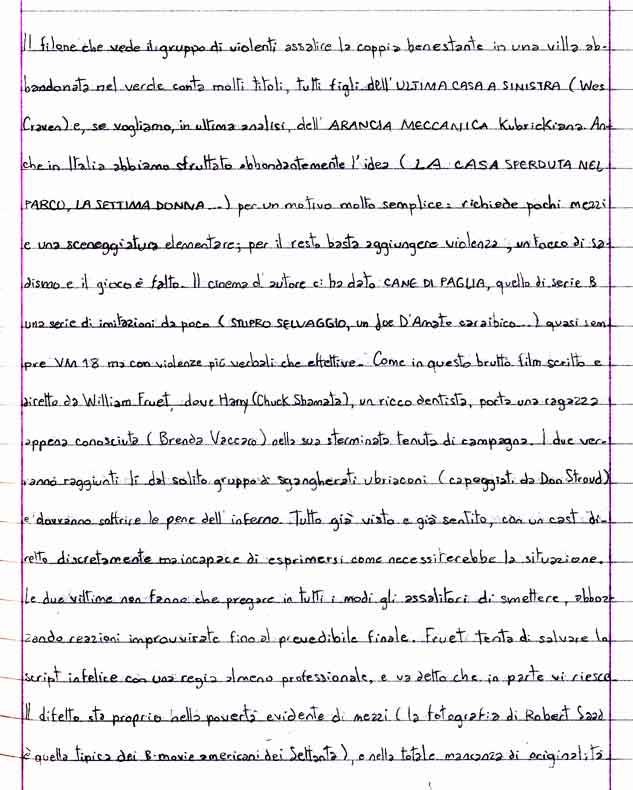 Il filone che vede il gruppo di violenti assalire la coppia benestante in una villa ab-
bandonata nel verde conta molti titoli, tutti figli dell'ULTIMA CASA A SINISTRA (Wes
Craven) e, se vogliamo, in ultima analisi, dell'ARANCIA MECCANICA Kubrickiana. An-
che in Italia abbiamo sfruttato abbondantemente l'idea (LA CASA SPERDUTA NEL
PARCO, LA SETTIMA DONNA...) per un motivo molto semplice: richiede pochi mezzi
e una sceneggiatura elementare; per il resto basta aggiungere violenza, un tocco di sa-
dismo e il gioco è fatto. Il cinema d'autore ci ha dato CANE DI PAGLIA, quello di serie B
una serie di imitazioni da poco (STUPRO SELVAGGIO, un Joe D'Amato caraibico...) quasi sem
pre VM 18 ma con violenze più verbali che effettive. Come in questo brutto film scritto e
diretto da William Fruet, dove Harry (Chuck Shamata), un ricco dentista, porta una ragazza
appena conosciuta (Brenda Vaccaro) nella sua sterminata tenuta di campagna. I due ver-
ranno raggiunti lì dal solito gruppo di sgangherati ubriaconi (capeggiati da Don Stroud)
e dovranno soffrire le pene dell'inferno. Tutto già visto e già sentito, con un cast di-
retto discretamente ma incapace di esprimersi come necessiterebbe la situazione.
Le due vittime non fanno che pregare in tutti i modi gli assalitori di smettere, abboz-
zando reazioni improvvisate fino al prevedibile finale. Fruet tenta di salvare lo
script infelice con una regia almeno professionale, e va detto che in parte vi riesce.
Il difetto sta proprio nella povertà evidente di mezzi (la fotografia di Robert Saad
è quella tipica dei B-movie americani dei Settanta), e nella totale mancanza di originalità